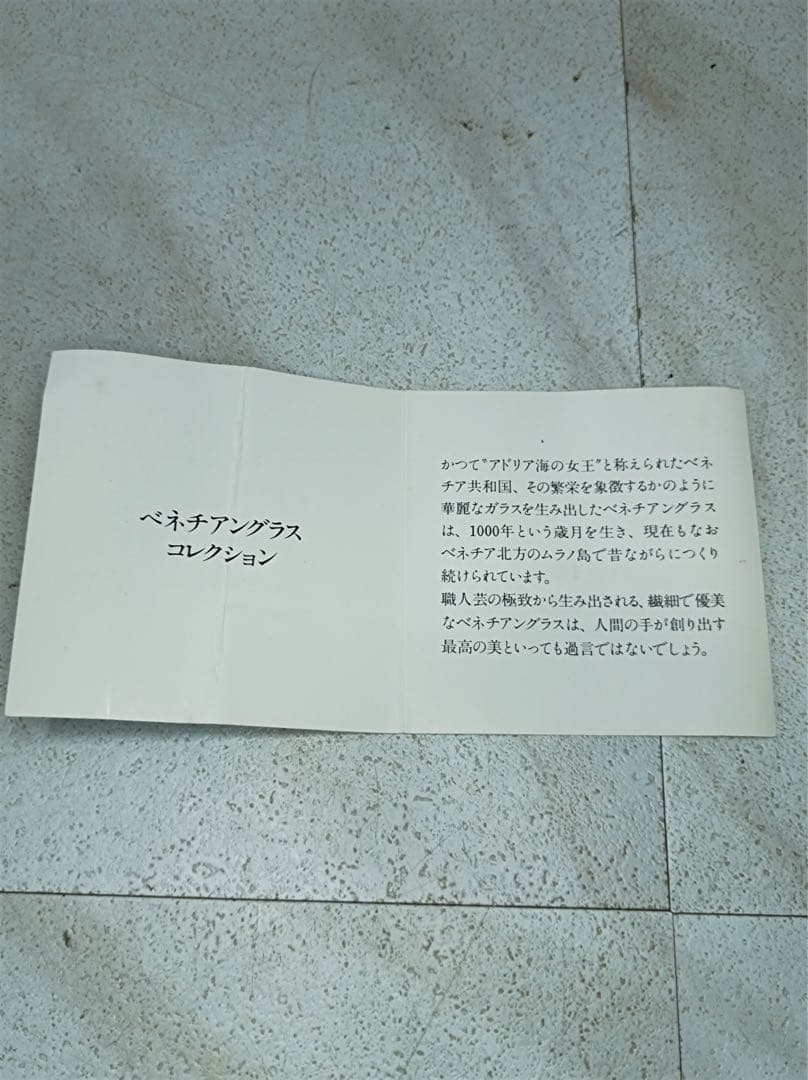 ベネチアングラス
コレクション
かつて〝アドリア海の女王〟と称えられたベネ
チア共和国、その繁栄を象徴するかのように
華麗なガラスを生み出したベネチアングラス
は、1000年という歳月を生き、現在もなお
ベネチア北方のムラノ島で昔ながらにつくり
続けられています。
職人芸の極致から生み出される、繊細で優美
なベネチアングラスは、人間の手が創り出す
最高の美といっても過言ではないでしょう。